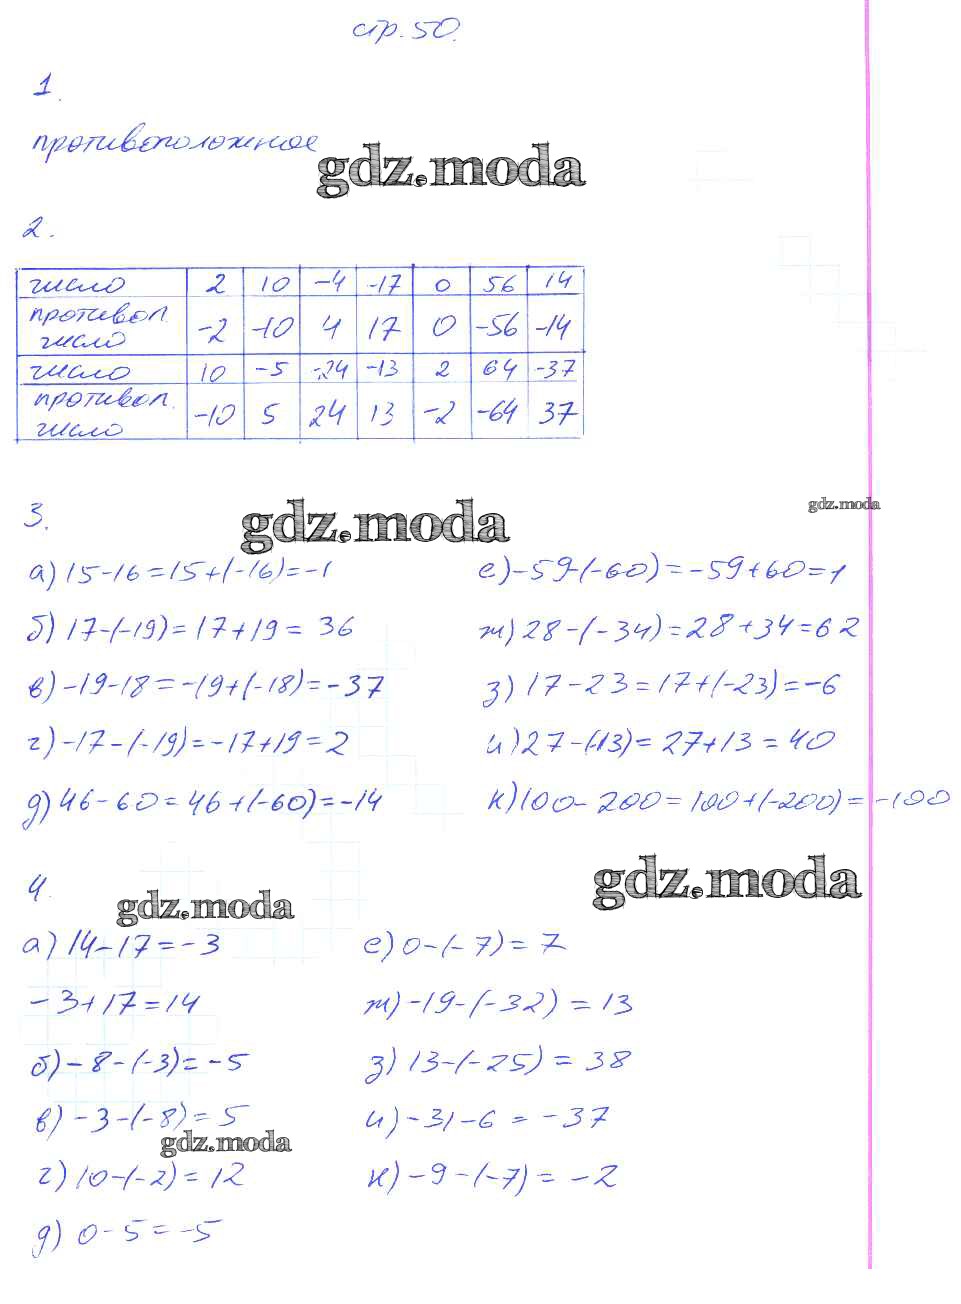 стр. 50.
1.
противоположное
gdz.moda
2.
число 2 10 -4 -17 0 56 14
противоп. число -2 -10 4 17 0 -56 -14
число 10 -5 -24 -13 2 64 -37
противоп. число -10 5 24 13 -2 -64 37
3.
gdz.moda
gdz.moda
а) 15-16=15+(-16)=-1
б) 17-(-19)=17+19=36
в) -19-18=-19+(-18)=-37
г) -17-(-19)=-17+19=2
д) 46-60=46+(-60)=-14
е) -59-(-60)=-59+60=1
ж) 28-(-34)=28+34=62
з) 17-23=17+(-23)=-6
и) 27-(-13)=27+13=40
к) 100-200=100+(-200)=-100
4.
gdz.moda
gdz.moda
а) 14-17=-3
-3+17=14
б) -8-(-3)=-5
в) -3-(-8)=5
gdz.moda
г) 10-(-2)=12
д) 0-5=-5
е) 0-(-7)=7
ж) -19-(-32)=13
з) 13-(-25)=38
и) -31-6=-37
к) -9-(-7)=-2